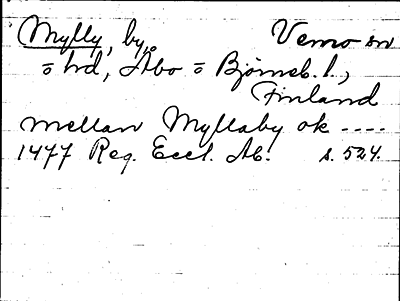 Mylly, by, Vemo sn
= hd, Åbo = Björneb. l.,
Finland
mellan Myllaby ok ----
1477 Reg. Eccl. Ab. s. 524.